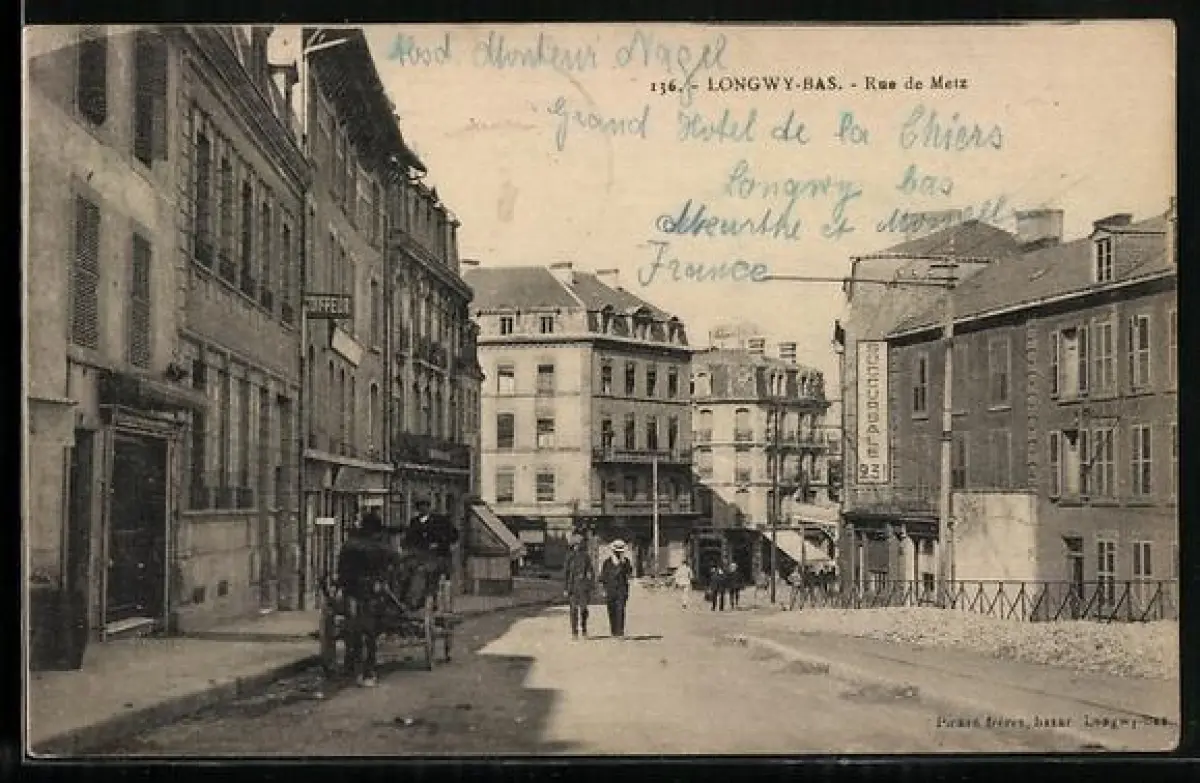 Absd Monteur Nagel
136. - LONGWY-BAS. - Rue de Metz
Grand Hotel de la Chiers
Longwy bas
Meurthe et Mosell
France
COIFFEUR
SUCCURSALE
93
Picard frères, bazar Longwy-Bas.